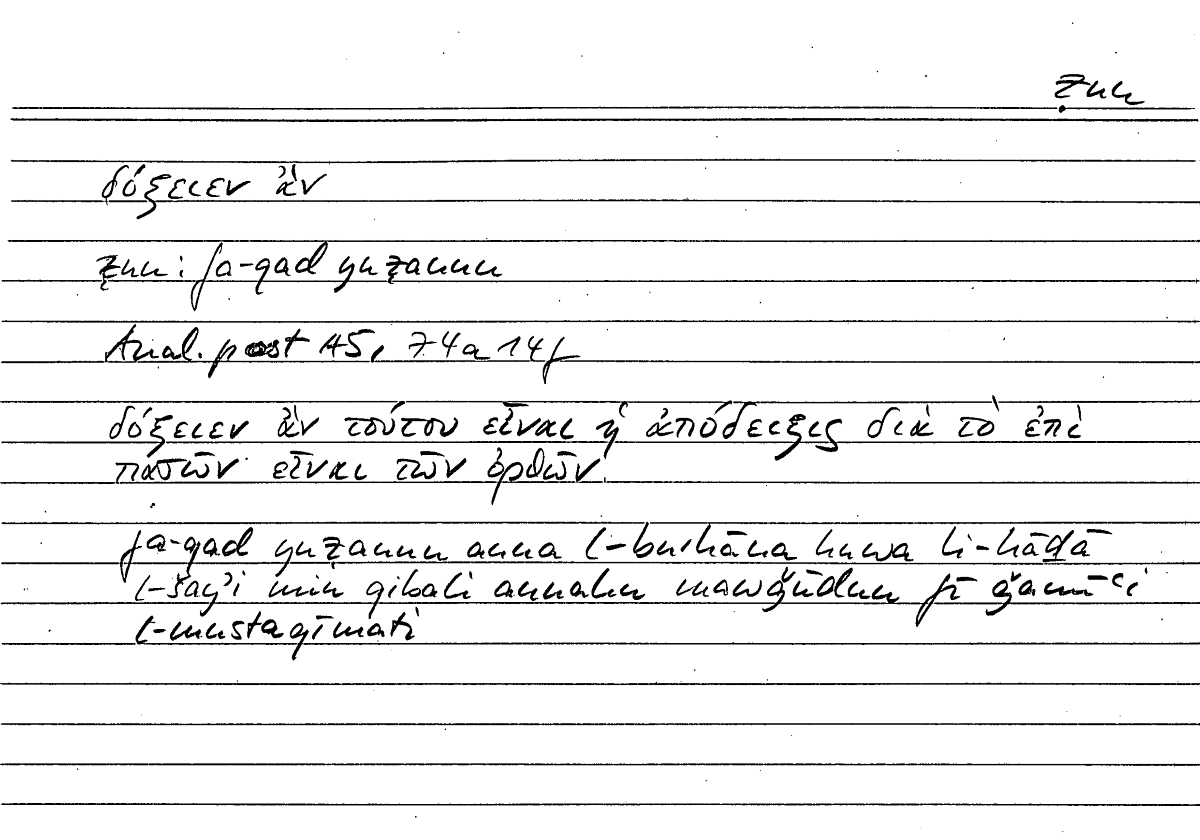 ẓnn
δόξειεν ἂν
ẓnn: fa-qad yuẓannu
Anal. post A5, 74a14f
δόξειεν ἂν τούτου εἶναι ἡ ἀπόδειξις διὰ τὸ ἐπὶ
πασῶν εἶναι τῶν ὀρθῶν.
fa-qad yuẓannu anna l-burhāna huwa li-hāḏā
l-šayʾi min qibali annahu mawǧūdun fī ǧamīʿi
l-mustaqīmati